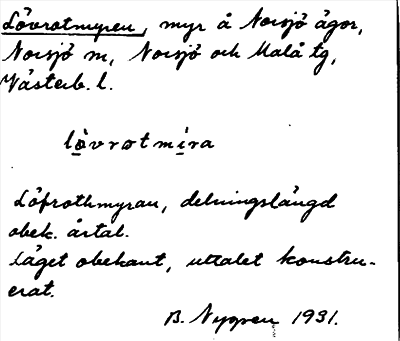 Lövrotmyren, myr å Norsjö ägor,
Norsjö m, Norsjö och Malå tg,
Västerb. l.
lövrotmira
Löfrothmyran, delningslängd
obek. årtal.
Läget obekant, uttalet konstru-
erat.
B. Nygren 1931.